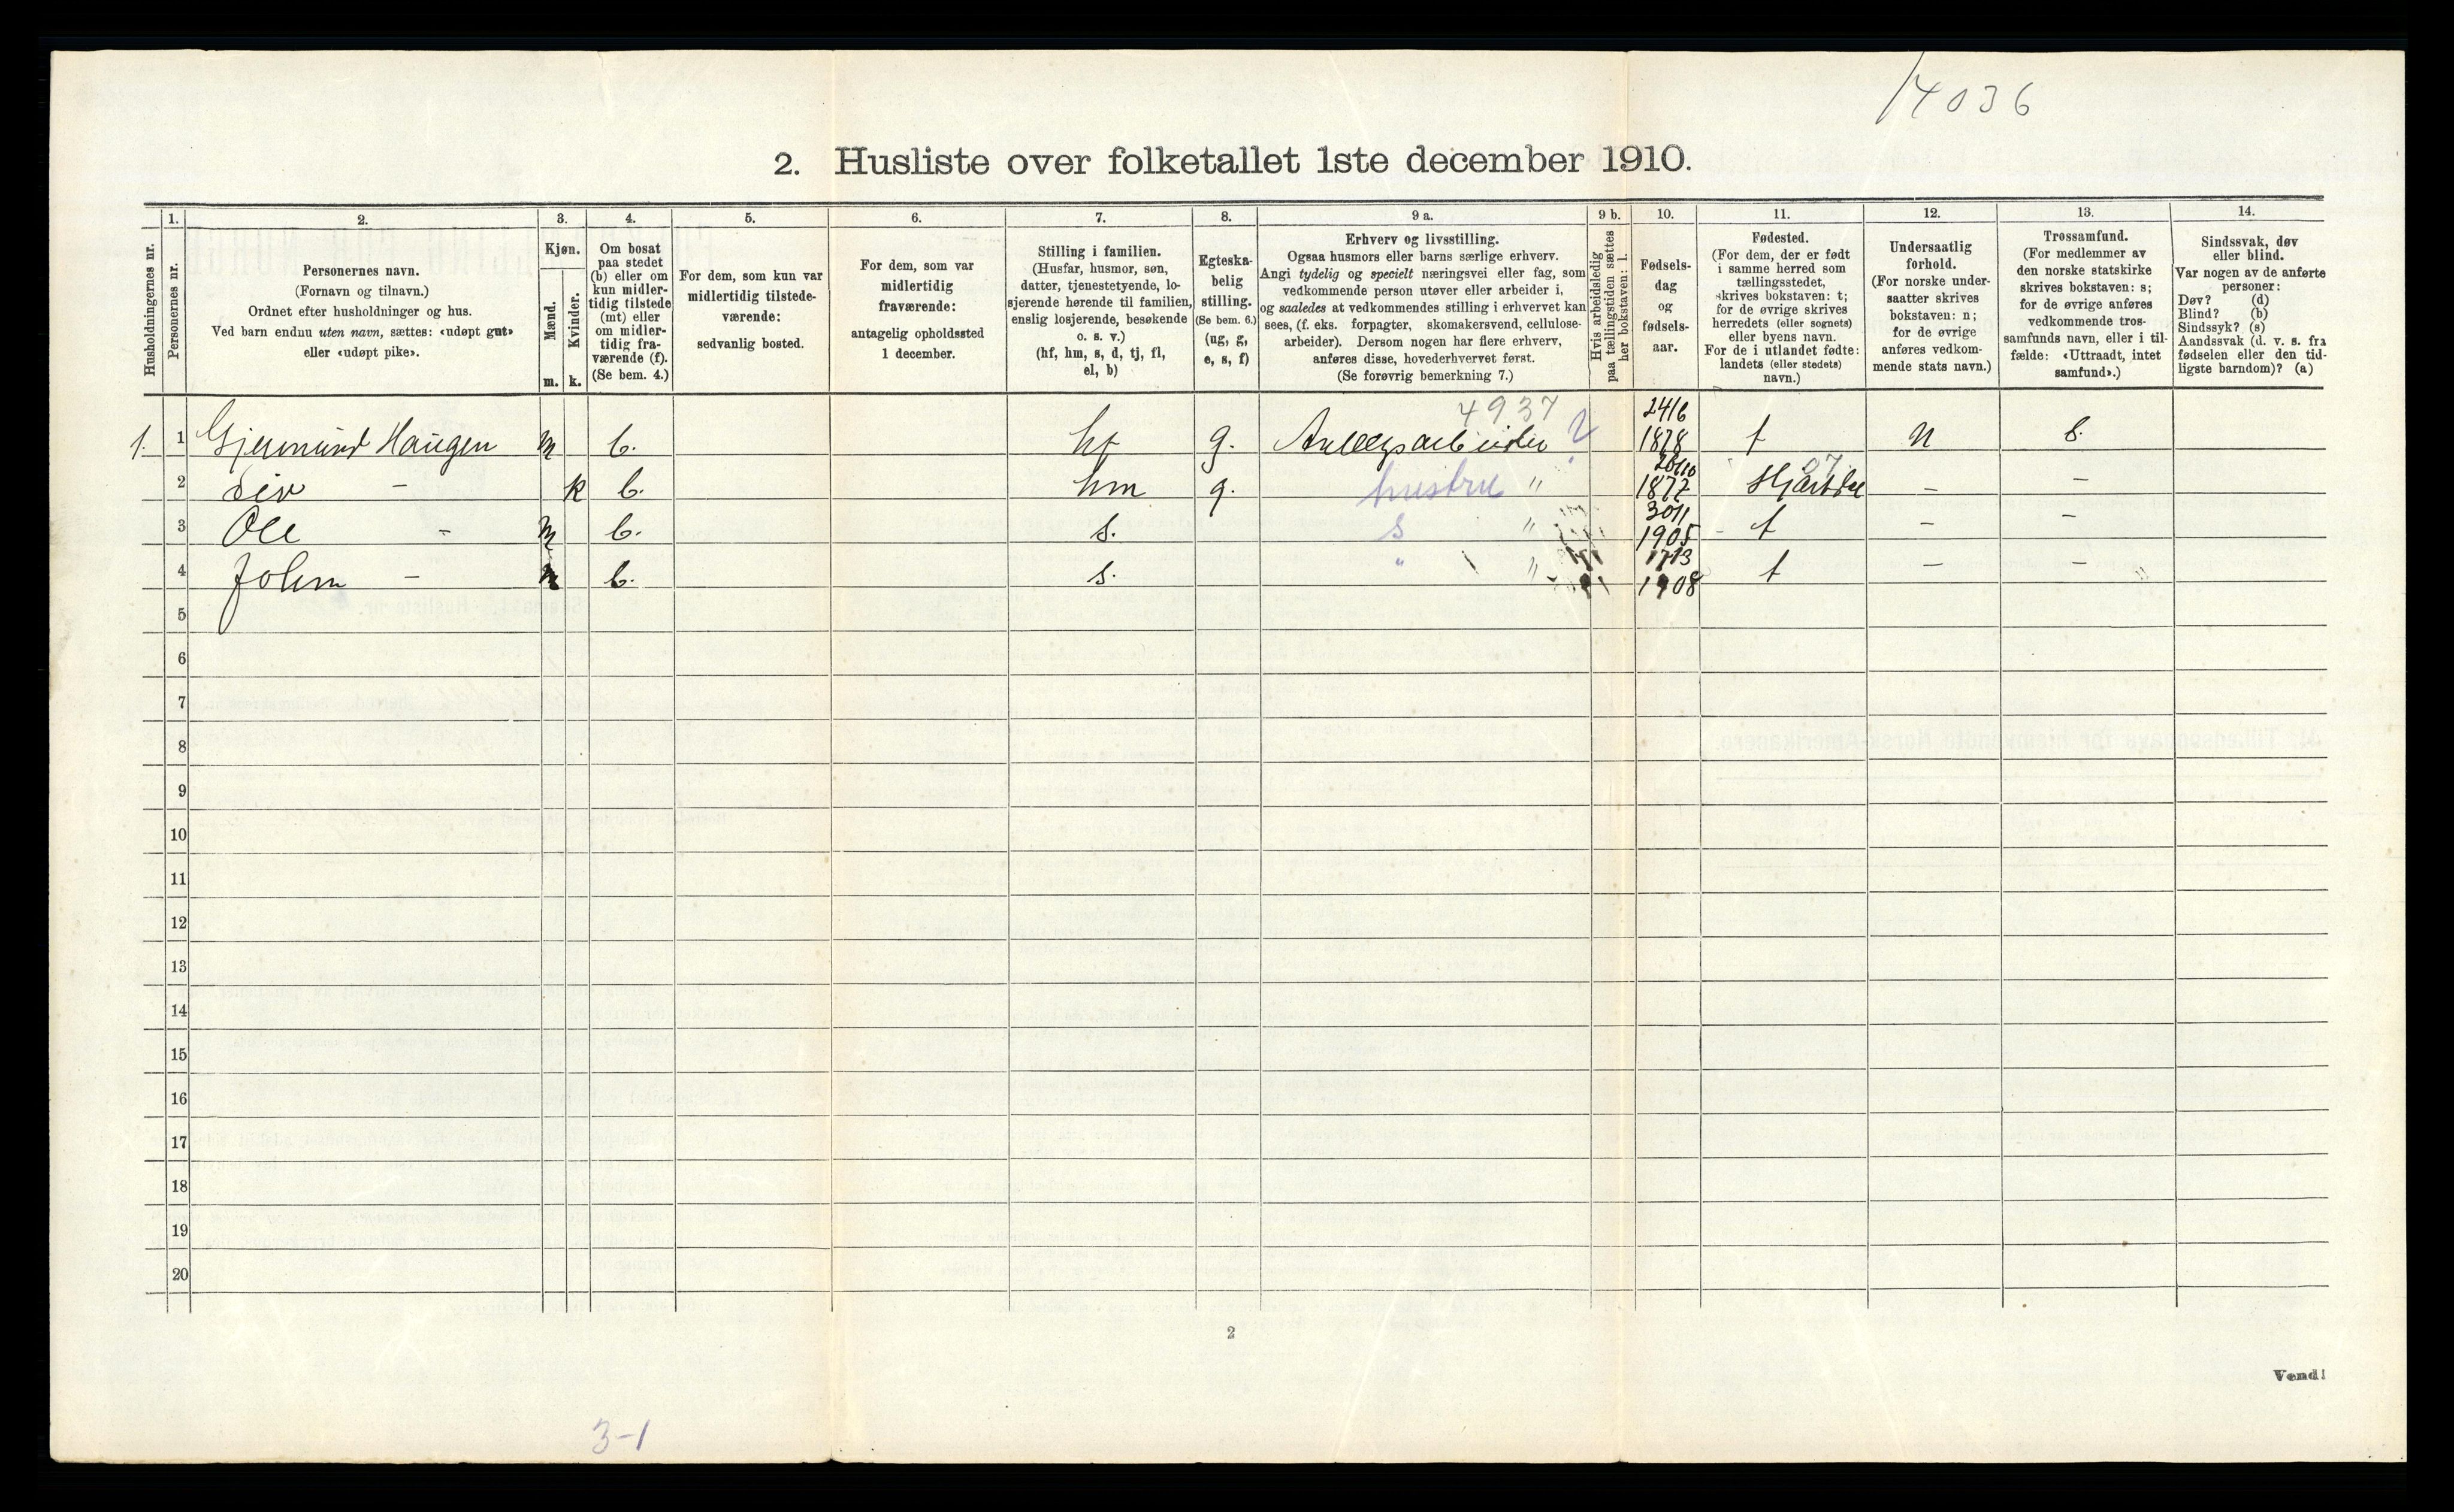 14036
2. Husliste over folketallet 1ste december 1910.
Husholdningernes nr.
1.
Personernes nr.
2.
Personernes navn.
(Fornavn og tilnavn.)
Ordnet efter husholdninger og hus.
Ved barn endnu uten navn, sættes: «udøpt gut»
eller «udøpt pike».
3.
Kjøn.
Mænd.
Kvinder.
m. k.
4.
Om bosat
paa stedet
(b) eller om
kun midler-
tidig tilstede
(mt) eller
om midler-
tidig fra-
værende (f).
(Se bem. 4.)
5.
For dem, som kun var
midlertidig tilstede-
værende:
sedvanlig bosted.
6.
For dem, som var
midlertidig
fraværende:
antagelig opholdssted
1 december.
7.
Stilling i familien.
(Husfar, husmor, søn,
datter, tjenestetyende, lo-
sjerende hørende til familien,
enslig losjerende, besøkende
o. s. v.)
(hf, hm, s, d, tj, fl,
el, b)
8.
Egteska-
belig
stilling.
(Se bem. 6.)
(ug, g,
e, s, f)
9 a.
Erhverv og livsstilling.
Ogsaa husmors eller barns særlige erhverv.
Angi tydelig og specielt næringsvei eller fag, som
vedkommende person utøver eller arbeider i,
og saaledes at vedkommendes stilling i erhvervet kan
sees, (f. eks. forpagter, skomakersvend, cellulose-
arbeider). Dersom nogen har flere erhverv,
anføres disse, hovederhvervet først.
(Se forøvrig bemerkning 7.)
9 b.
Hvis arbeidsledig
paa tællingstiden sættes
her bokstaven: l.
10.
Fødsels-
dag
og
fødsels-
aar.
11.
Fødested.
(For dem, der er født
i samme herred som
tællingsstedet,
skrives bokstaven: t;
for de øvrige skrives
herredets (eller sognets)
eller byens navn.
For de i utlandet fødte:
landets (eller stedets)
navn.)
12.
Undersaatlig
forhold.
(For norske under-
saatter skrives
bokstaven: n;
for de øvrige
anføres vedkom-
mende stats navn.)
13.
Trossamfund.
(For medlemmer av
den norske statskirke
skrives bokstaven: s;
for de øvrige anføres
vedkommende tros-
samfunds navn, eller i til-
fælde: «Uttraadt, intet
samfund».)
14.
Sindssvak, døv
eller blind.
Var nogen av de anførte
personer:
Døv? (d)
Blind? (b)
Sindssyk? (s)
Aandssvak (d. v. s. fra
fødselen eller den tid-
ligste barndom)? (a)
4937 24/6
1. 1 Gjermund Haugen m b. hf g. Anlægsarbeider ? 1878 t n s.
26/10 97
2 Liv - k b. hm g. hustru " 1877 Hjartdal - -
30/1
3 Ole - m b. s. s " 1905 - t - -
17/3
4 John - m b. s. " " 1908 t - -
5
6
7
8
9
10
11
12
13
14
15
16
17
18
19
20
2
Vend!
3-1